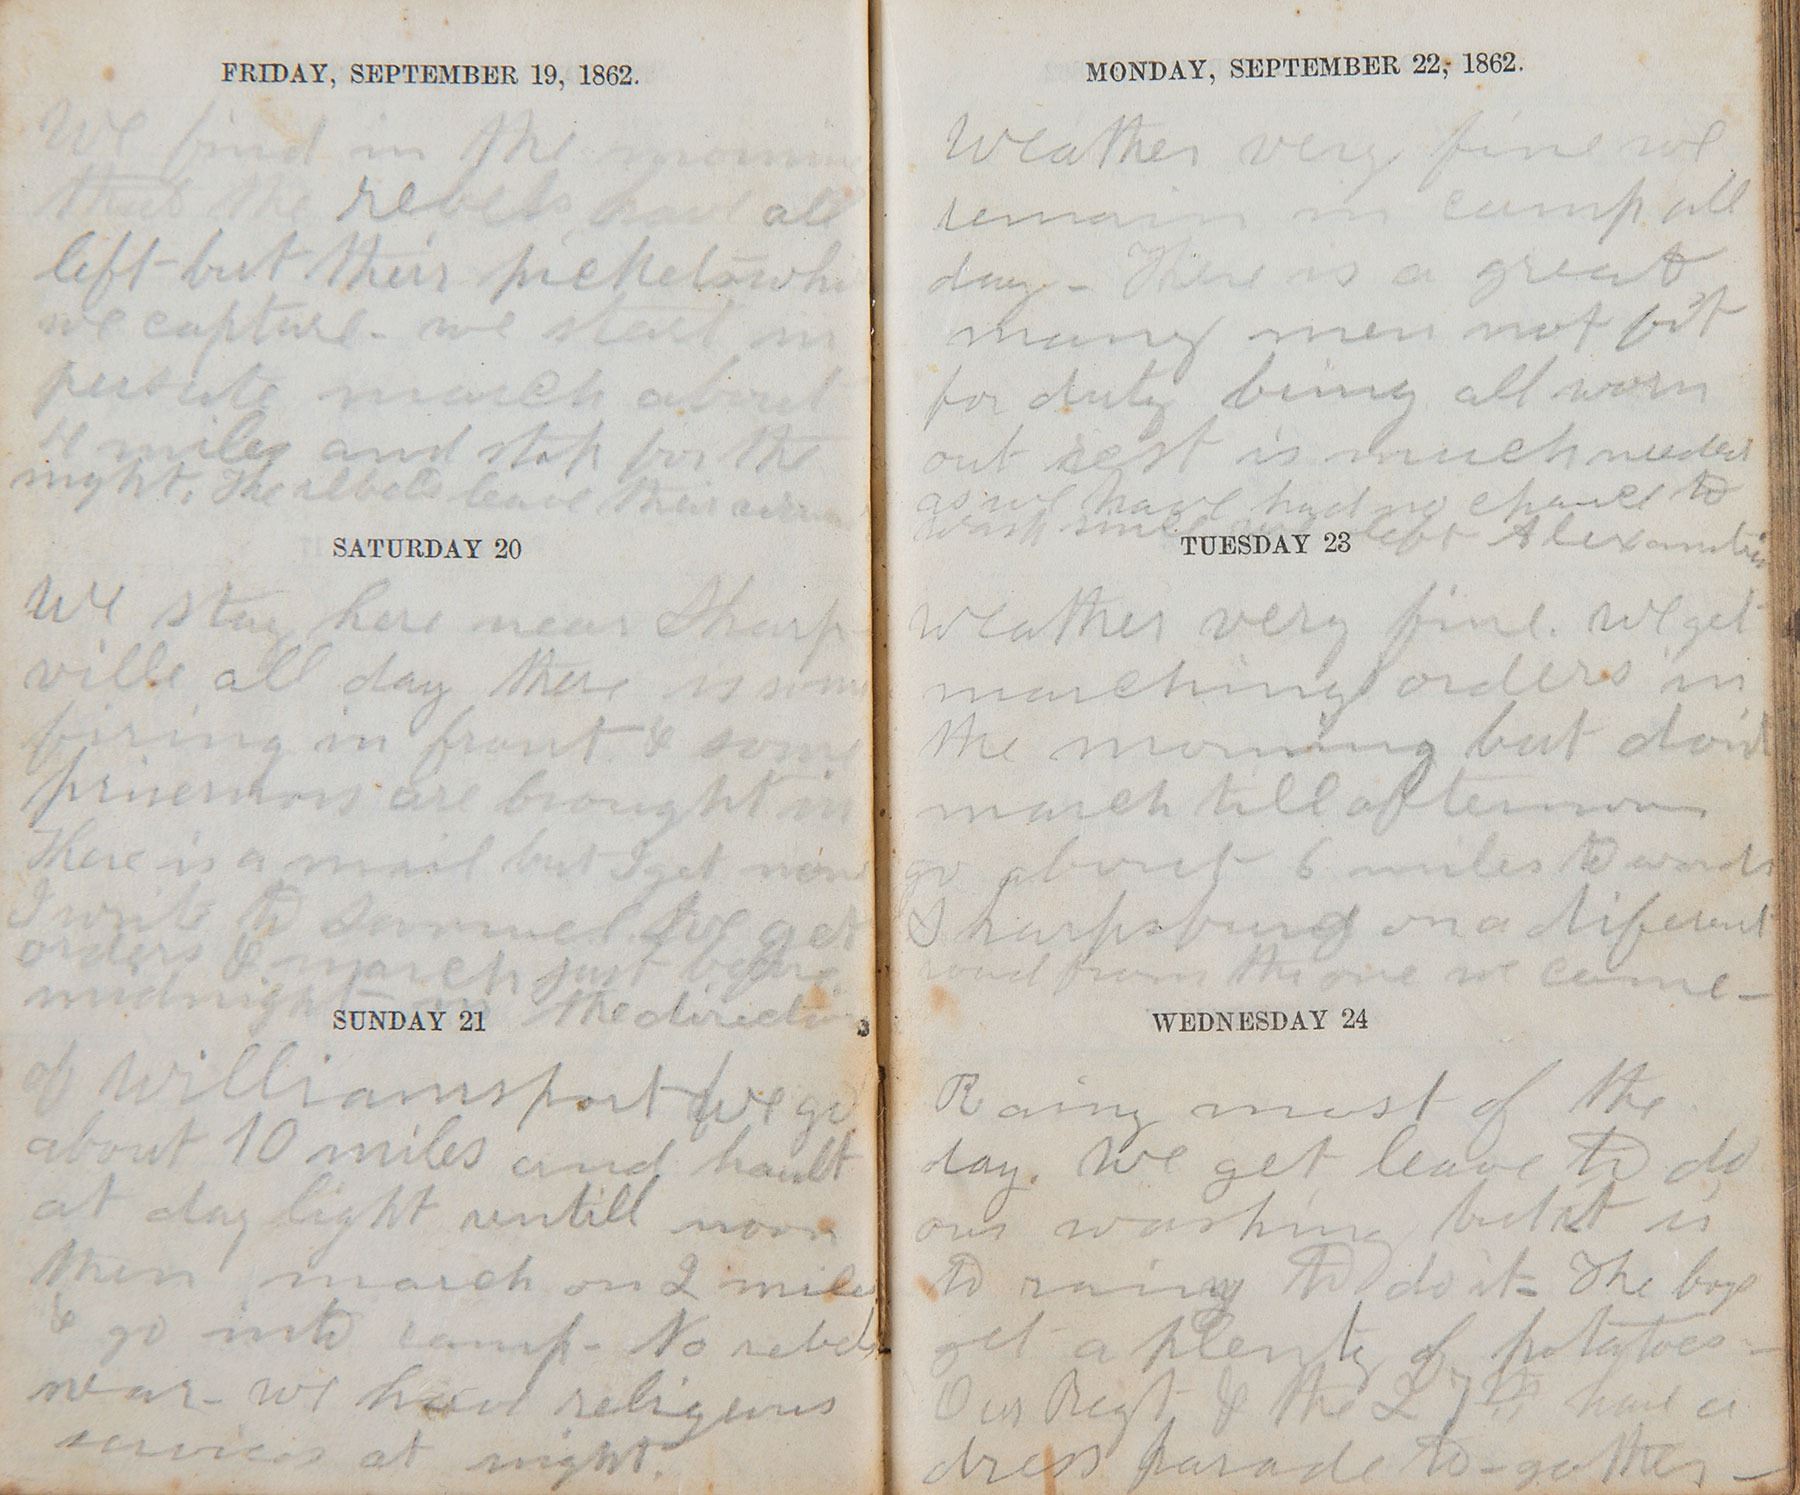 FRIDAY, SEPTEMBER 19, 1862.
We find in the mornin
that the rebels had all
left but their pickets whi
we capture - we start in
persute march about
4 miles and stop for the
night. The rebels leave their
SATURDAY 20
We stay here near Sharp
ville all day there is some
firing in front & some
prisernors are brought in
There is a mail but I get none
I write to Samuel. We get
orders & march just before
midnight in the direction
SUNDAY 21
of Williamsport We go
about 10 miles and hault
at day light untill noon
then march on 2 miles
& go into camp - No rebels
near - we have religeous
services at night.
MONDAY, SEPTEMBER 22, 1862.
Weather very fine we
remain in camp all
day - There is a great
many men not fit
for duty being all worn
out rest is much needed
as we have had no chance to
wash since we left Alexandria
TUESDAY 23
Weather very fine. We get
marching orders in
the morning but don't
march till afternoon
go about 6 miles to wards
Sharpsburg on a diferent
road from the one we came -
WEDNESDAY 24
Rainy most of the
day. We get leave to do
our washing but it is
to rainy to do it - The boys
get a plenty of potatoes -
Our Regt & the 27th have a
dress parade to-gather -